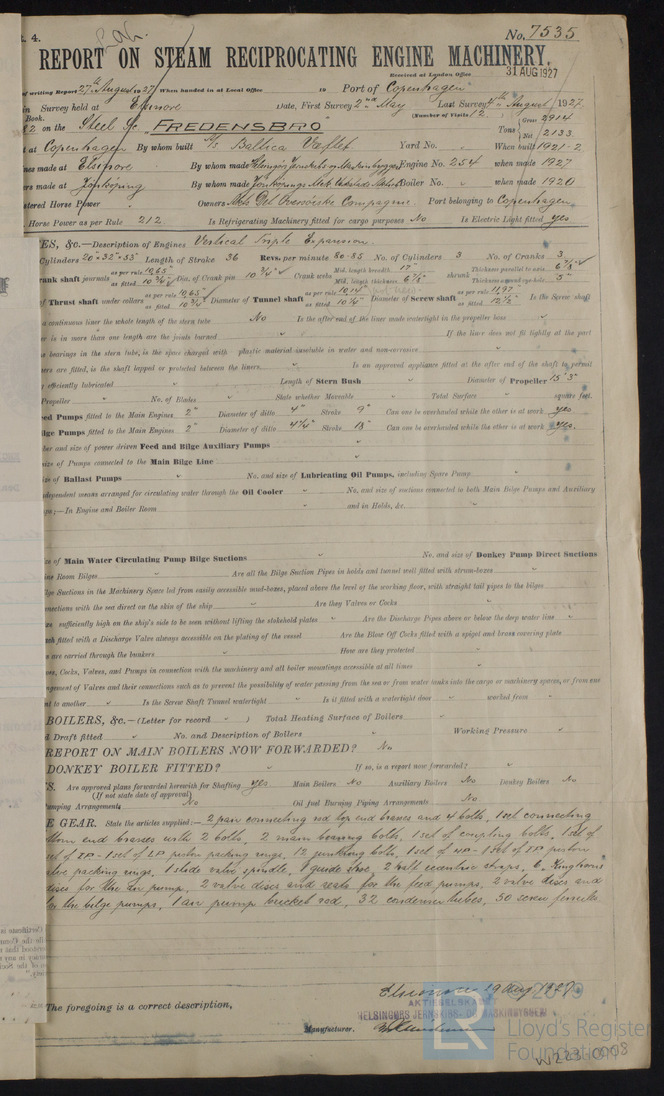 t. 4.
No. 7535
REPORT ON STEAM RECIPROCATING ENGINE MACHINERY.
Received at London Office 31 AUG 1927
of writing Report 27th August 1927 When handed in at Local Office 19 Port of Copenhagen
in Survey held at Elsinore Date, First Survey 2nd May Last Survey 4th August 1927
Book. (Number of Visits 12.
on the Steel S/c FREDENSBRO Tons Gross 2914 Net 2133
t at Copenhagen By whom built A/s Baltica Værftet Yard No. „ When built 1921-2
ines made at Elsinore By whom made Engine No. 254 when made 1927
ers made at Jönköping By whom made Boiler No. „ when made 1920
stered Horse Power Owners Port belonging to Copenhagen
Horse Power as per Rule 212. Is Refrigerating Machinery fitted for cargo purposes No Is Electric Light fitted yes
ES, &c.—Description of Engines Vertical Triple Expansion.
Cylinders 20"-32"-53" Length of Stroke 36 Revs. per minute 80-85 No. of Cylinders 3 No. of Cranks 3
rank shaft journals as per rule 10,65" as fitted 10 3/4" Dia. of Crank pin 10 3/4" Crank webs Mid. length breadth 17" Mid. length thickness 6 7/8" shrunk Thickness parallel to axis 6 7/8" Thickness around eye-hole 5"
of Thrust shaft under collars as per rule 10,65" as fitted 10 3/4" Diameter of Tunnel shaft as per rule 10,14" as fitted 10 1/4" Diameter of Screw shaft as per rule 11,97 as fitted 12 1/2" Is the Screw shaft
a continuous liner the whole length of the stern tube No Is the after end of the liner made watertight in the propeller boss „
er is in more than one length are the joints burned „ If the liner does not fit tightly at the part
e bearings in the stern tube, is the space charged with plastic material insoluble in water and non-corrosive „
ers are fitted, is the shaft lapped or protected between the liners „ Is an approved appliance fitted at the after end of the shaft to permit
efficiently lubricated „ Length of Stern Bush „ Diameter of Propeller 15'3"
Propeller „ No. of Blades „ State whether Moveable „ Total Surface „ square feet.
eed Pumps fitted to the Main Engines 2" Diameter of ditto 4" Stroke 9" Can one be overhauled while the other is at work yes
lge Pumps fitted to the Main Engines 2" Diameter of ditto 4 1/4" Stroke 18" Can one be overhauled while the other is at work yes.
ber and size of power driven Feed and Bilge Auxiliary Pumps „
size of Pumps connected to the Main Bilge Line „
ze of Ballast Pumps „ No. and size of Lubricating Oil Pumps, including Spare Pump „
ndependent means arranged for circulating water through the Oil Cooler „ No. and size of suctions connected to both Main Bilge Pumps and Auxiliary
ps;—In Engine and Boiler Room „ and in Holds, &c. „
ze of Main Water Circulating Pump Bilge Suctions „ No. and size of Donkey Pump Direct Suctions
ine Room Bilges „ Are all the Bilge Suction Pipes in holds and tunnel well fitted with strum-boxes „
lge Suctions in the Machinery Space led from easily accessible mud-boxes, placed above the level of the working floor, with straight tail pipes to the bilges „
nnections with the sea direct on the skin of the ship „ Are they Valves or Cocks „
xe sufficiently high on the ship's side to be seen without lifting the stokehold plates „ Are the Discharge Pipes above or below the deep water line „
ach fitted with a Discharge Valve always accessible on the plating of the vessel „ Are the Blow Off Cocks fitted with a spigot and brass covering plate „
s are carried through the bunkers „ How are they protected „
oes, Cocks, Valves, and Pumps in connection with the machinery and all boiler mountings accessible at all times „
ngement of Valves and their connections such as to prevent the possibility of water passing from the sea or from water tanks into the cargo or machinery spaces, or from one
nt to another „ Is the Screw Shaft Tunnel watertight „ Is it fitted with a watertight door „ worked from „
BOILERS, &c.—(Letter for record „ ) Total Heating Surface of Boilers „
d Draft fitted „ No. and Description of Boilers „ Working Pressure „
REPORT ON MAIN BOILERS NOW FORWARDED? No
DONKEY BOILER FITTED? „ If so, is a report now forwarded? „
S. Are approved plans forwarded herewith for Shafting yes Main Boilers No Auxiliary Boilers No Donkey Boilers No
(If not state date of approval)
umping Arrangements No Oil fuel Burning Piping Arrangements No
E GEAR. State the articles supplied:— 2 pair connecting rod top end brasses and 4 bolts, 1 set connecting
ttom end brasses with 2 bolts, 2 main bearing bolts, 1 set of coupling bolts, 1 set of
set of IP - 1 set of LP piston packing rings, 12 junkring bolts, 1 set of HP - 1 set of IP piston
alve packing rings, 1 slide valve spindle, 1 guide shoe, 2 half eccentric straps, 6 "Kinghorn"
discs for the air pump, 2 valve discs and seats for the feed pumps, 2 valve discs and
for the bilge pumps, 1 air pump bucket rod, 32 condenser tubes, 50 screw ferrules
Elsinore 19 Aug. 1927
AKTIESELSKABET
HELSINGØRS JERNSKIBS- OG MASKINBYGGERI
The foregoing is a correct description,
Manufacturer.
© 2019
LR
Lloyd's Register
Foundation
W223-0008